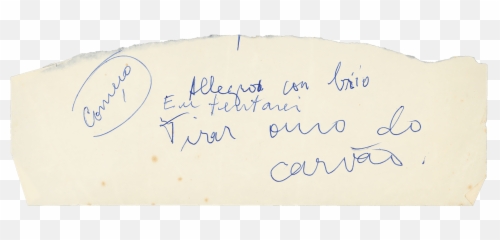 Allegro con brio
Eu tentarei
Tirar ouro do
carvão.